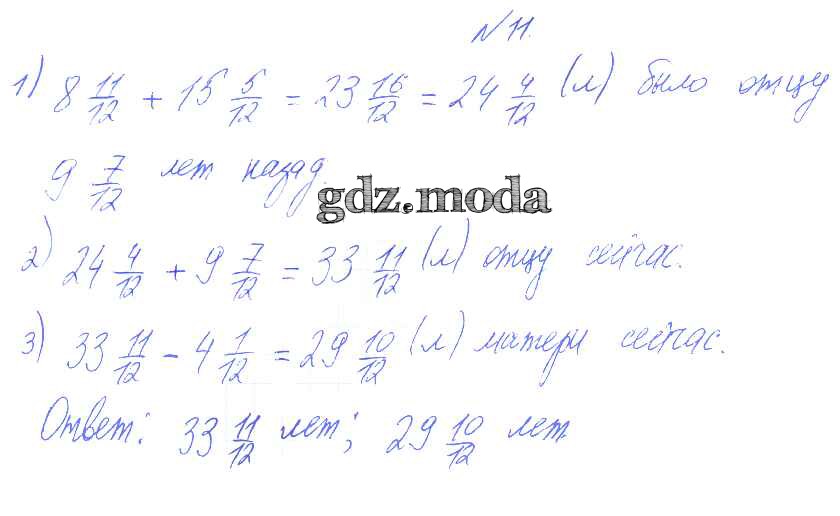 № 11.
1) 8 11/12 + 15 5/12 = 23 16/12 = 24 4/12 (л) было отцу
9 7/12 лет назад.
gdz.moda
2) 24 4/12 + 9 7/12 = 33 11/12 (л) отцу сейчас.
3) 33 11/12 - 4 1/12 = 29 10/12 (л) матери сейчас.
Ответ: 33 11/12 лет; 29 10/12 лет